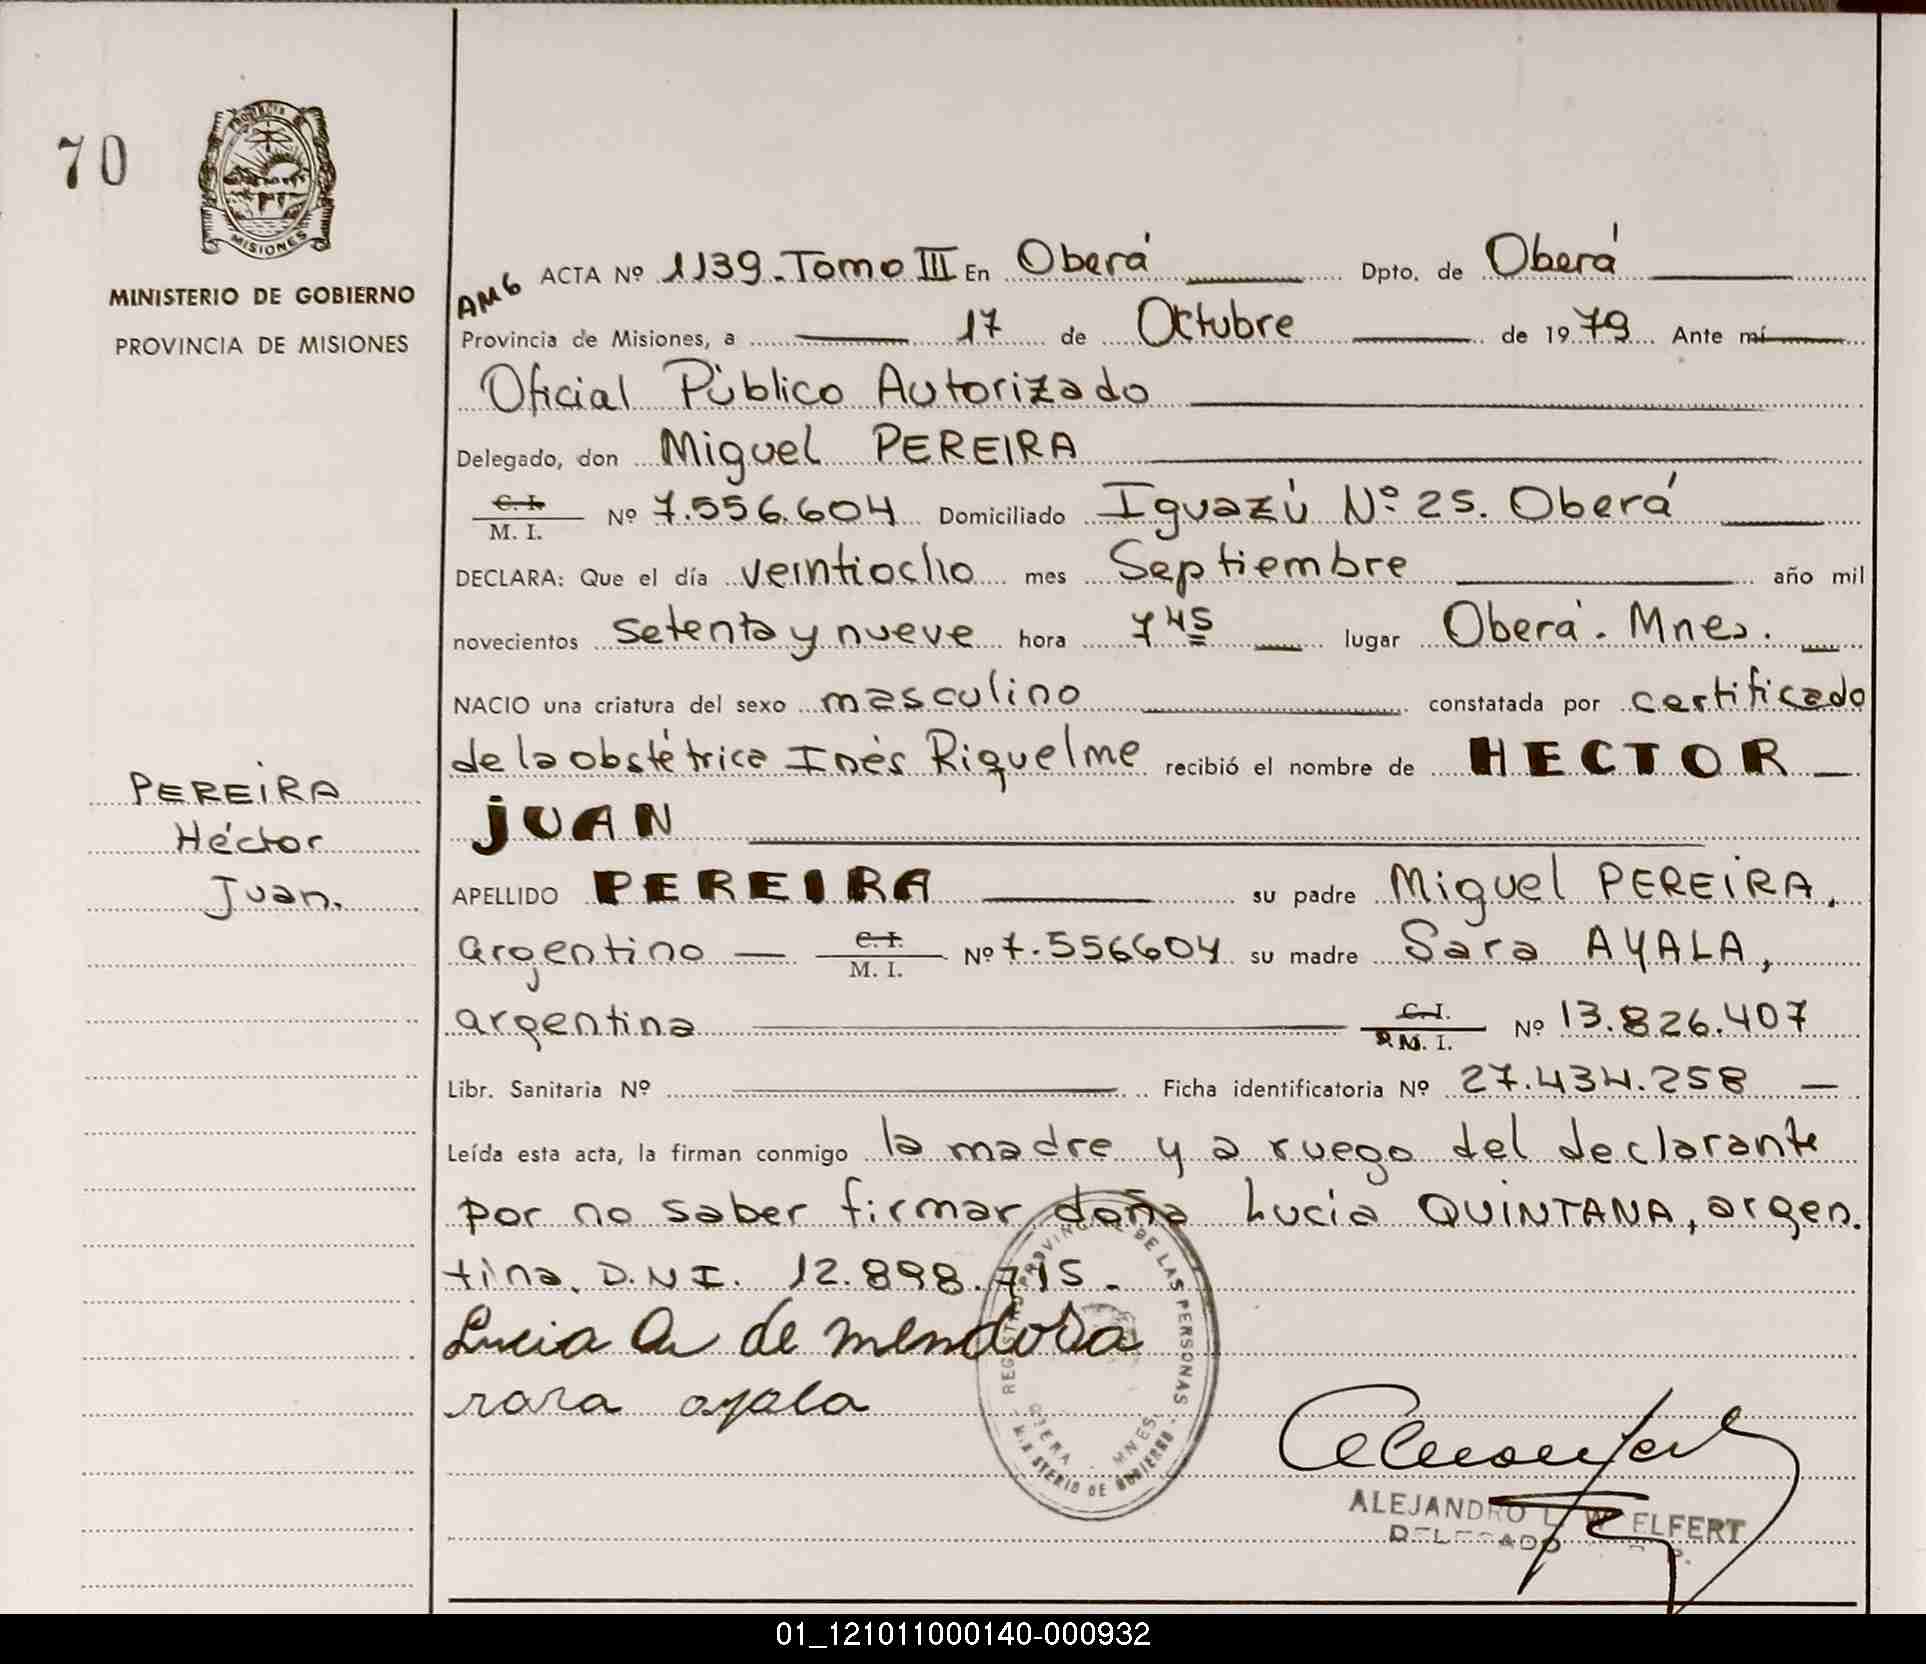 70
PROVINCIA DE
MISIONES
MINISTERIO DE GOBIERNO
PROVINCIA DE MISIONES
AM6 ACTA Nº 1139-Tomo III En Oberá Dpto. de Oberá
Provincia de Misiones, a 17 de Octubre de 1979 Ante mí
Oficial Público Autorizado
Delegado, don Miguel PEREIRA
C. I.
M. I. Nº 7.556.604 Domiciliado Iguazú Nº 25. Oberá
DECLARA: Que el día veintiocho mes Septiembre año mil
novecientos setenta y nueve hora 7 45 lugar Oberá. Mnes.
NACIO una criatura del sexo masculino constatada por certificado
de la obstétrica Inés Riquelme recibió el nombre de HECTOR
JUAN
PEREIRA
Héctor
Juan.
APELLIDO PEREIRA su padre Miguel PEREIRA,
argentino C. I.
M. I. Nº 7.556604 su madre Sara AYALA,
argentina C. I.
M. I. Nº 13.826.407
Libr. Sanitaria Nº Ficha identificatoria Nº 27.434.258
Leída esta acta, la firman conmigo la madre y a ruego del declarante
por no saber firmar doña Lucia QUINTANA, argen.
tina. D.N.I. 12.898.715.
Lucia Q de mendosa
sara ayala
DE LAS PERSONAS
OBERA - MNES.
MINISTERIO DE GOBIERNO
ALEJANDRO L. WELFERT
DELEGADO
01_121011000140-000932